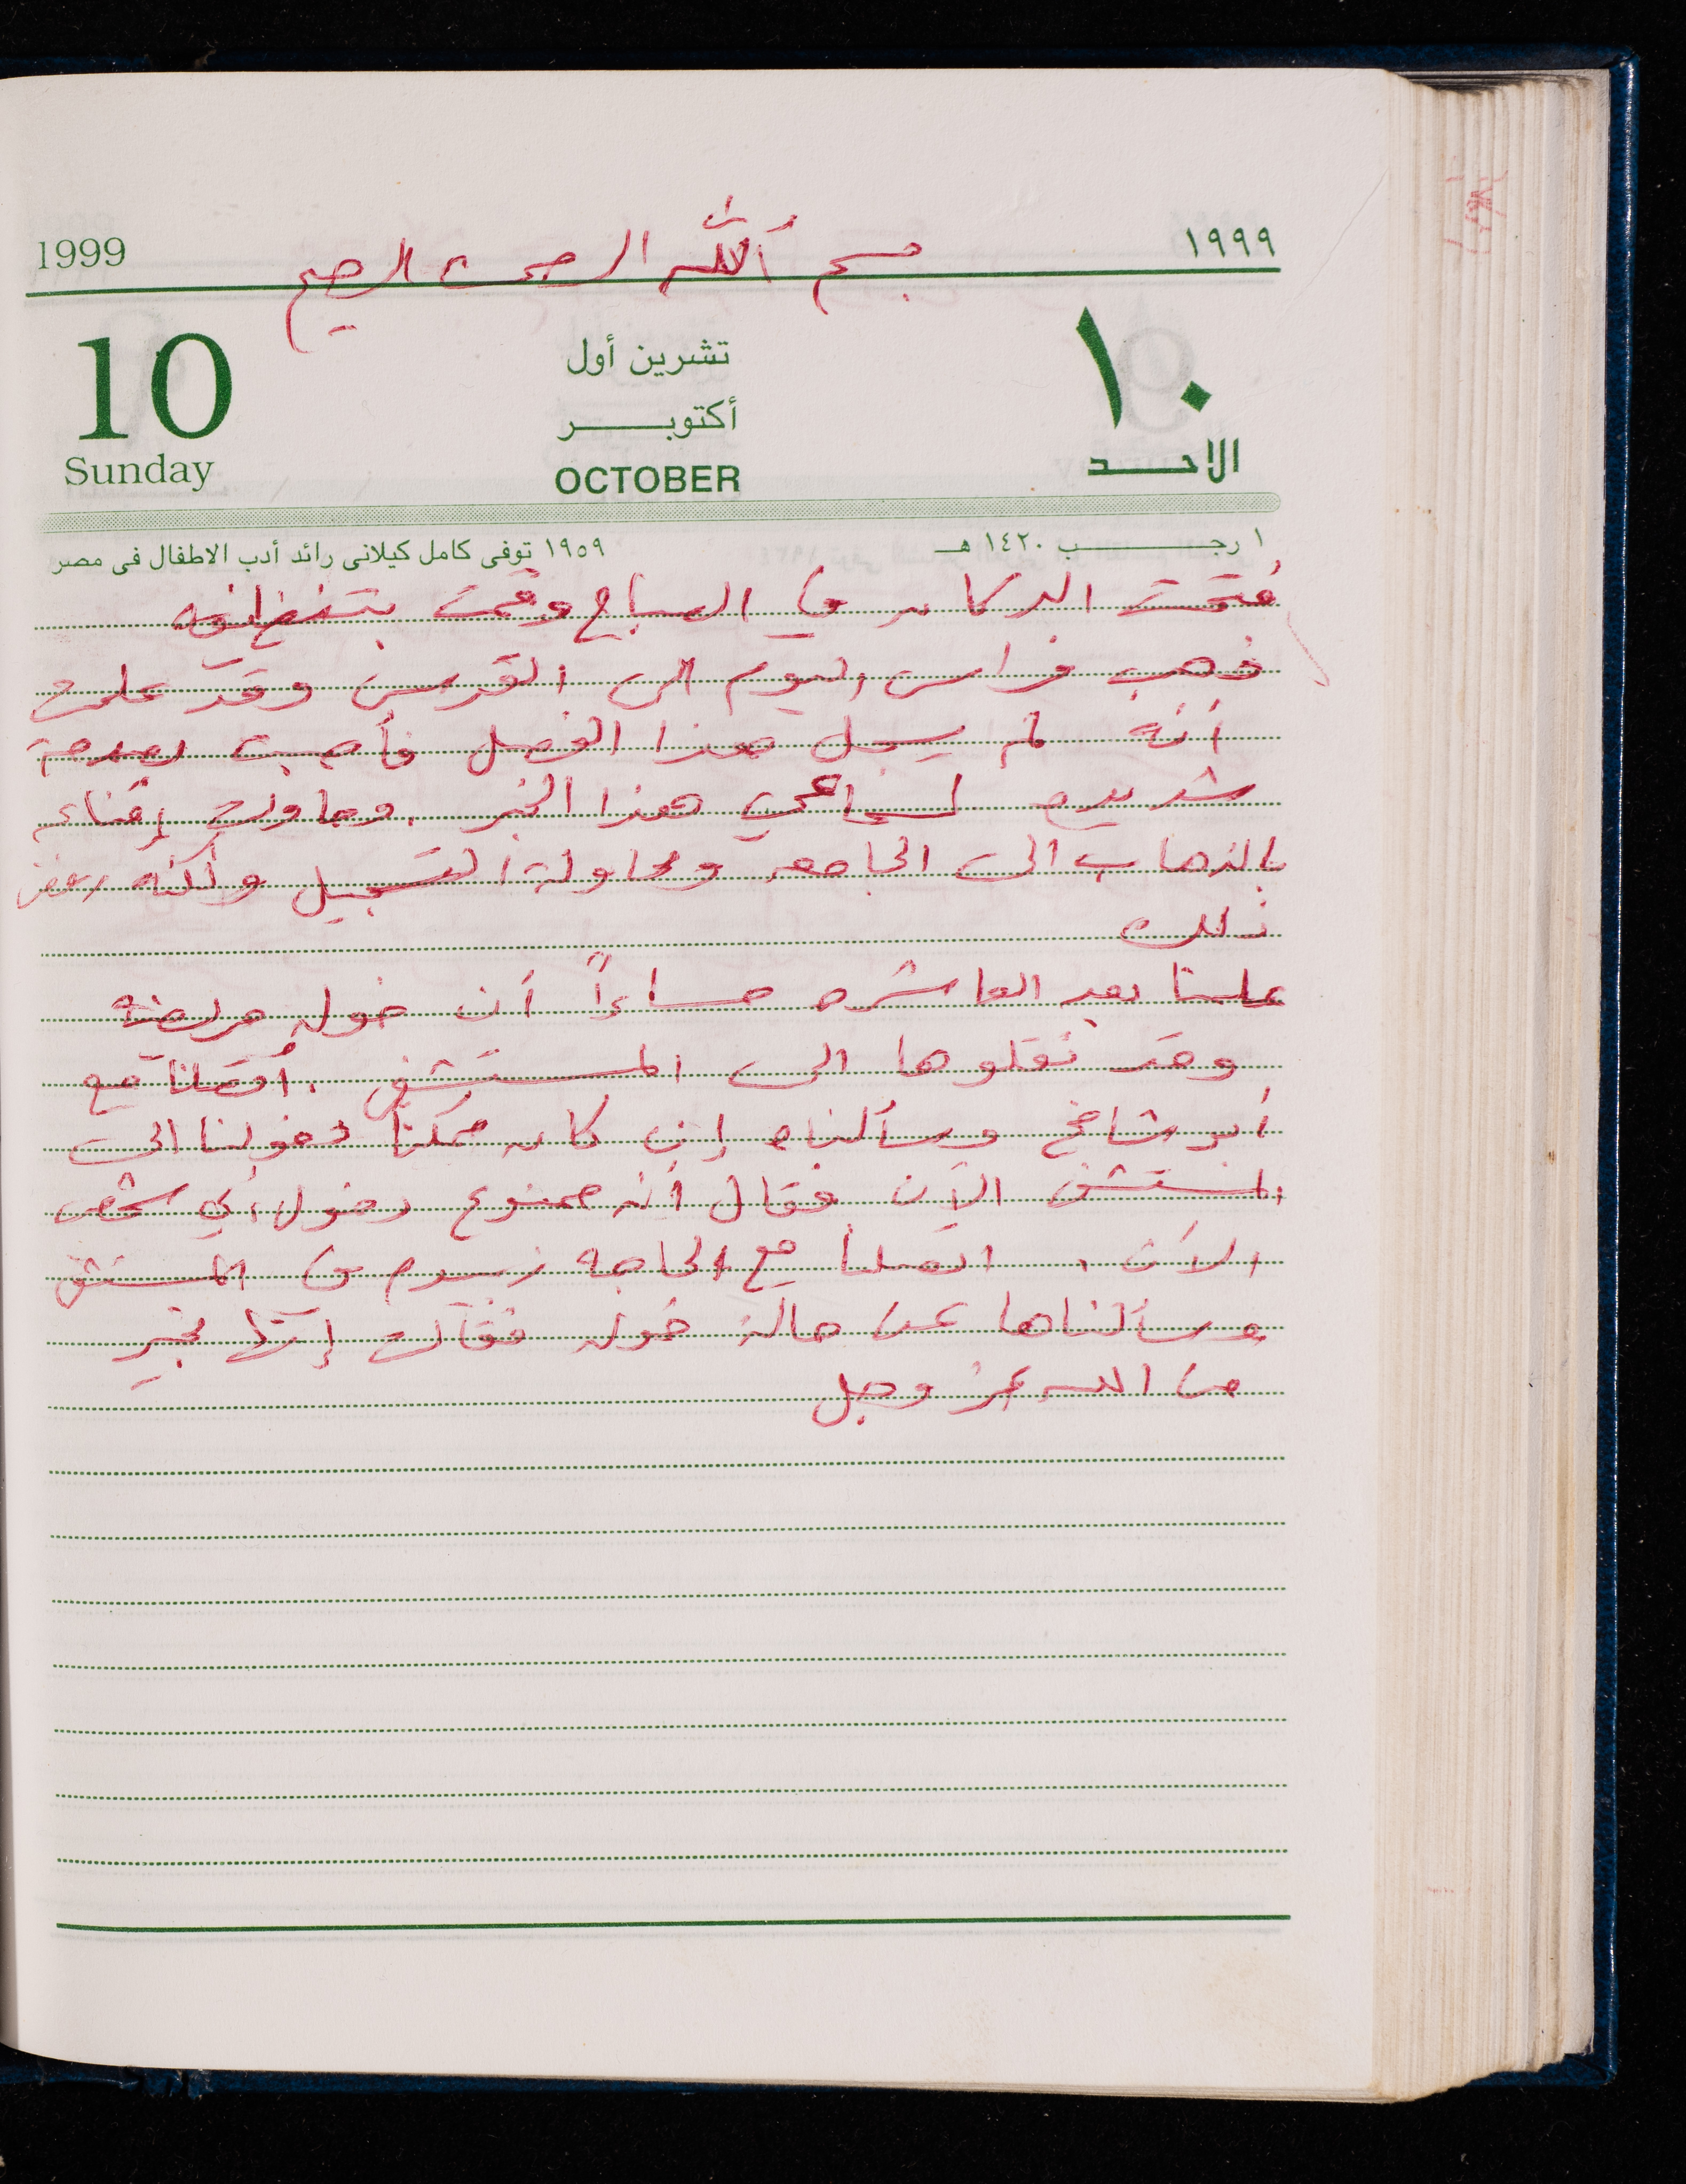 1999 ١٩٩٩
بسم الله الرحمن الرحيم
10 ١٠
تشرين أول
أكتوبر
Sunday OCTOBER الاحد
١ رجب ١٤٢٠ هـ ١٩٥٩ توفى كامل كيلانى رائد أدب الاطفال فى مصر
فتحت الدكان في الصباح وقمت بتنظيفه
ذهب فراس اليوم الى القدس وقد علمت
أنه لم يسجل هذا الفصل فأصبت بصدمة
شديده لسماعي هذا الخبر. وحاولت إقناعه
بالذهاب الى الجامعه ومحاولة التسجيل ولكنه رفض
ذلك
علمنا بعد العاشره مساءاً أن خوله مريضه
وقد نقلوها الى المستشفى. اتصلنا مع
أبو شامخ وسألناه إن كان ممكناً دخولنا الى
المستشفى الآن فقال أنه ممنوع دخول أي شخص
الآن. اتصلنا مع الحاجه في المستشفى
وسألناها عن حالة خوله فقالت إنها بخير
من الله عز وجل